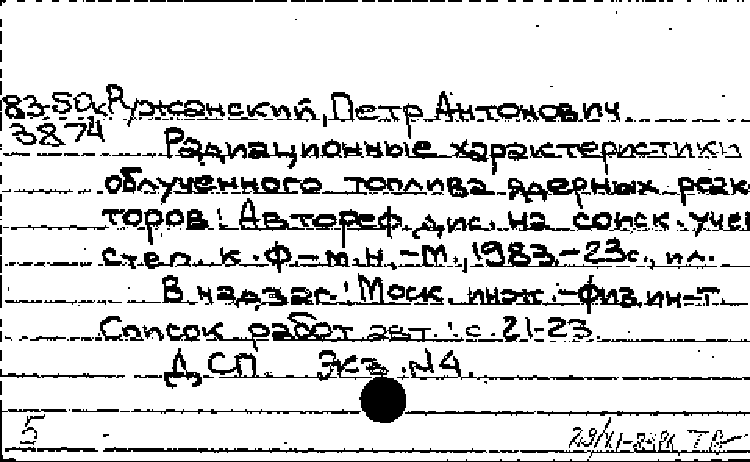 83-50к Ружанский, Петр Антонович.
3874 Радиационные характеристики
облученного топлива ядерных реак
торов: Автореф. дис. на соиск. учен
степ. к. ф.-м. н. -М., 1983.-23с., ил.
В надзаг.: Моск. инж.-физ. ин-т.
Список работ авт.: с. 21-23.
ДСП. Экз. N4.
5